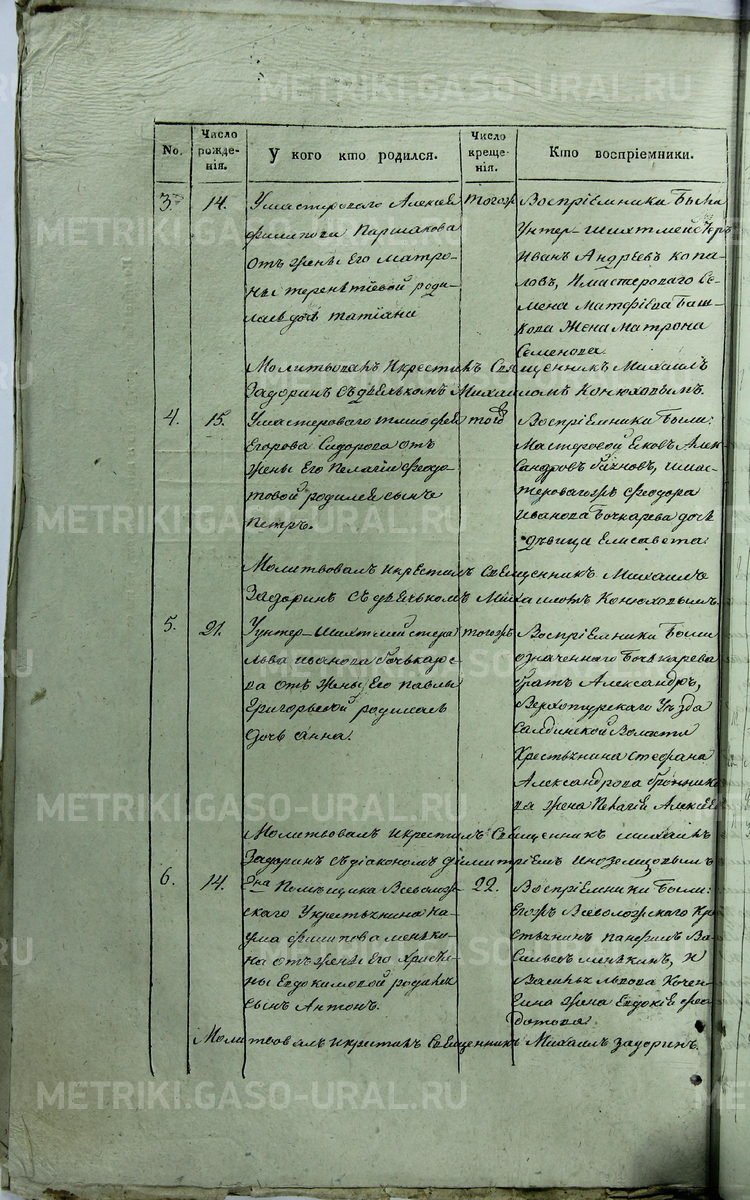 METRIKI.GASO-URAL.RU
No.
Число рожде-нія.
У кого кто родился.
Число креще-нія.
Кто воспріемники.
3. 14.
Умастероваго Алексея
Филипова Паршакова
отъ жены Его Матро-
ны терентіевой роди-
лась дочь татіана
тогожъ
Воспріемники Были
Унтер-шихтмейстеръ
Иванъ Андреевъ копы
ловъ, Имастероваго Се-
мена Матфіева Баш-
кова Жена Матрона
Семенова
Молитвовалъ Икрестилъ Священникъ Михаилъ
Задоринъ Съдьячькомъ Михаиломъ Конюховымъ.
4. 15.
Умастероваго тимофея
Егорова Сидорова отъ
жены Его Пелагіи Феодо-
товой родился сынъ
Петръ.
Воспріемники Были:
Мастеровой Яковъ Алек-
сандровъ имас-
тероваго Феодора
Иванова Бочкарева дочь
дѣвица Елисавета.
Молитвовалъ икрестилъ Священникъ Михаилъ
Задоринъ Съдьячькомъ Михаиломъ Конюховымъ
5. 21.
Уунтер-шихтмейстера
Льва иванова бочькаре-
ва отъ жены Его Павлы
Григорьевой родилась
дочь анна.
тогожъ
Воспріемники Были
означеннаго Бочькарева
братъ Александръ,
Верхотурскаго Уѣзда
Салдинской Волости
Крестьянина Стефана
Александрова бронников-
ва жена Пелагія Алексѣева
Молитвовалъ икрестилъ Священникъ михаилъ
Задоринъ Съдіакономъ Димитріемъ Иноземцовымъ
6. 14.
Г-на Помѣщика Всеволож-
скаго Укрестьянина на-
ума филипова менько-
ва отъ жены Его Христи-
ны Евдокимовой родился
сынъ Антонъ.
22.
Воспріемники Были:
Егожъ Всеволожскаго Кре-
стьянинъ Панфилъ Ва-
сильевъ менькинъ, и
Василья львова Кочен-
гина жена Евдокія Фео-
дотова.
Молитвовалъ икрестилъ Священникъ Михаилъ Задоринъ.